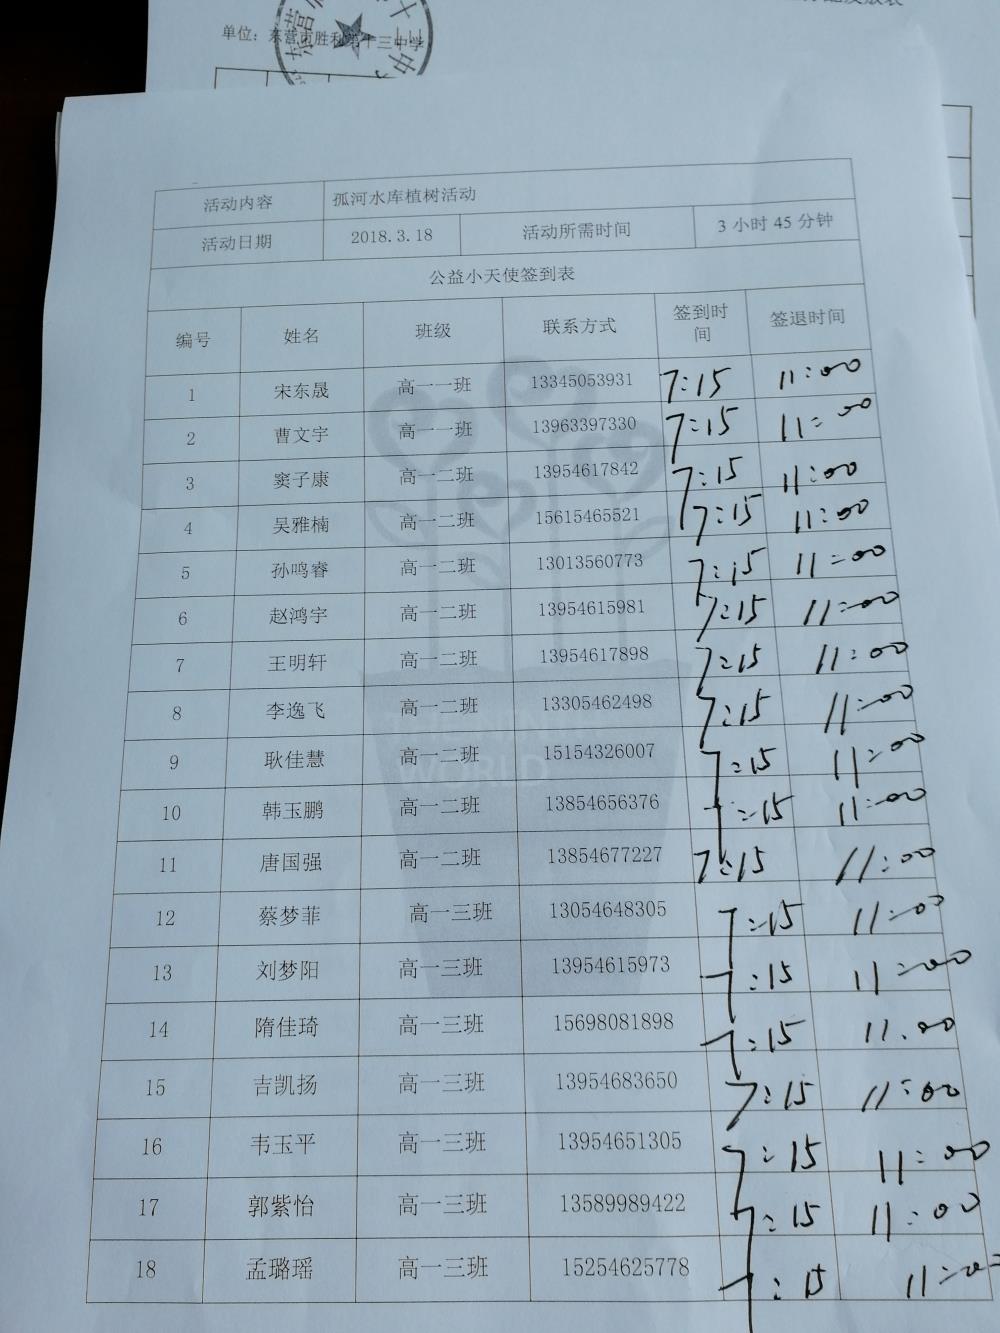 单位：东营市胜利第十三中学
活动内容 孤河水库植树活动
活动日期 2018.3.18 活动所需时间 3 小时 45 分钟
公益小天使签到表
编号 姓名 班级 联系方式 签到时间 签退时间
1 宋东晟 高一一班 13345053931 7:15 11:00
2 曹文宇 高一一班 13963397330 7:15 11:00
3 窦子康 高一二班 13954617842 7:15 11:00
4 吴雅楠 高一二班 15615465521 7:15 11:00
5 孙鸣睿 高一二班 13013560773 7:15 11:00
6 赵鸿宇 高一二班 13954615981 7:15 11:00
7 王明轩 高一二班 13954617898 7:15 11:00
8 李逸飞 高一二班 13305462498 7:15 11:00
9 耿佳慧 高一二班 15154326007 7:15 11:00
10 韩玉鹏 高一二班 13854656376 7:15 11:00
11 唐国强 高一二班 13854677227 7:15 11:00
12 蔡梦菲 高一三班 13054648305 7:15 11:00
13 刘梦阳 高一三班 13954615973 7:15 11:00
14 隋佳琦 高一三班 15698081898 7:15 11.00
15 吉凯扬 高一三班 13954683650 7:15 11:00
16 韦玉平 高一三班 13954651305 7:15 11:00
17 郭紫怡 高一三班 13589989422 7:15 11:00
18 孟璐瑶 高一三班 15254625778 7:15 11:00
WORLD